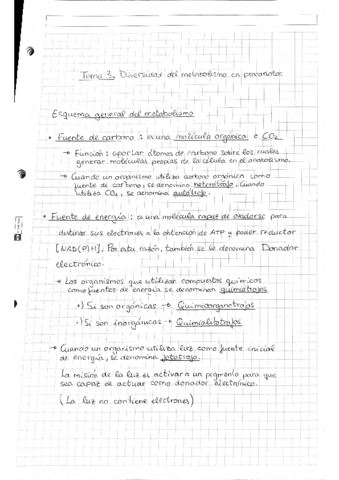 Tema 3. Diversidad del metabolismo en procariotas
Esquema general del metabolismo
• Fuente de carbono : es una molécula orgánica o CO2
→ Función : aportar átomos de carbono sobre los cuales
generar moléculas propias de la célula en el anabolismo.
→ Cuando un organismo utiliza carbono orgánico como
fuente de carbono, se denomina heterótrofo. Cuando
utiliza CO2, se denomina autótrofo.
• Fuente de energía : es una molécula capaz de oxidarse para
destinar sus electrones a la obtención de ATP y poder reductor
[NAD(P)H]. Por esta razón, también se le denomina Donador
electrónico.
→ Los organismos que utilizan compuestos químicos
como fuentes de energía se denominan quimiotrofos
•) Si son orgánicas → Quimioorganotrofos
•) Si son inorgánicas → Quimiolitotrofos
→ Cuando un organismo utiliza luz como fuente inicial
de energía, se denomina fototrofo.
La misión de la luz es activar a un pigmento para que
sea capaz de actuar como donador electrónico.
(La luz no contiene electrones)